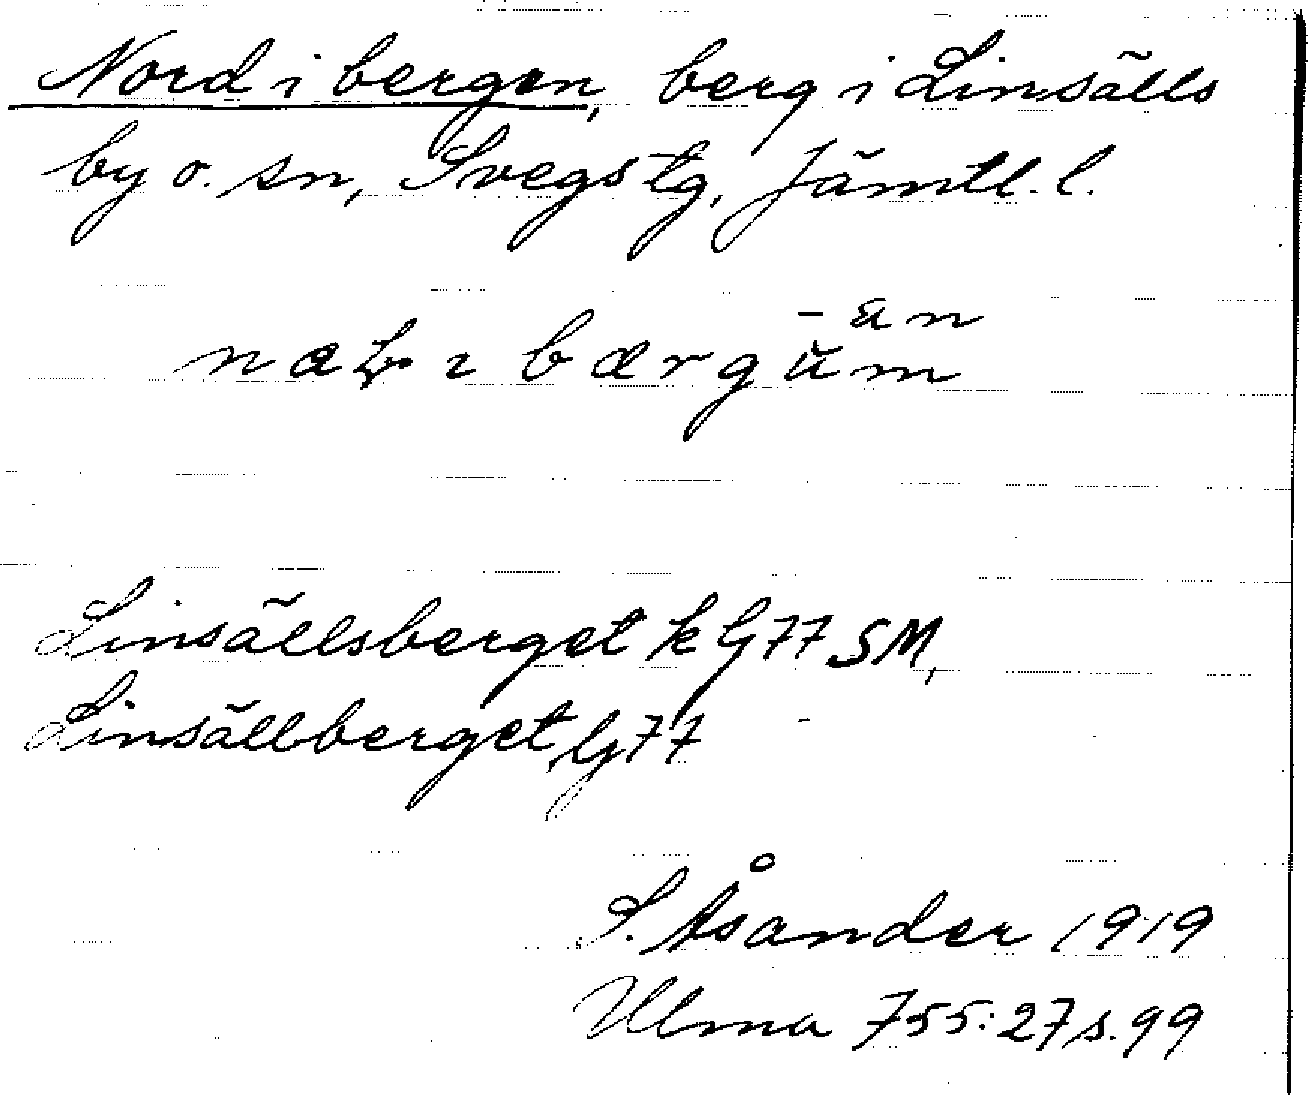 Nord i bergen, berg i Linsälls
by o. sn, Svegs tg, Jämtl. l.
- an
i bærgum
Linsällsberget k G77 SM,
Linsällberget, G77
S. Åsander 1919
Ulma 755:27 s. 99